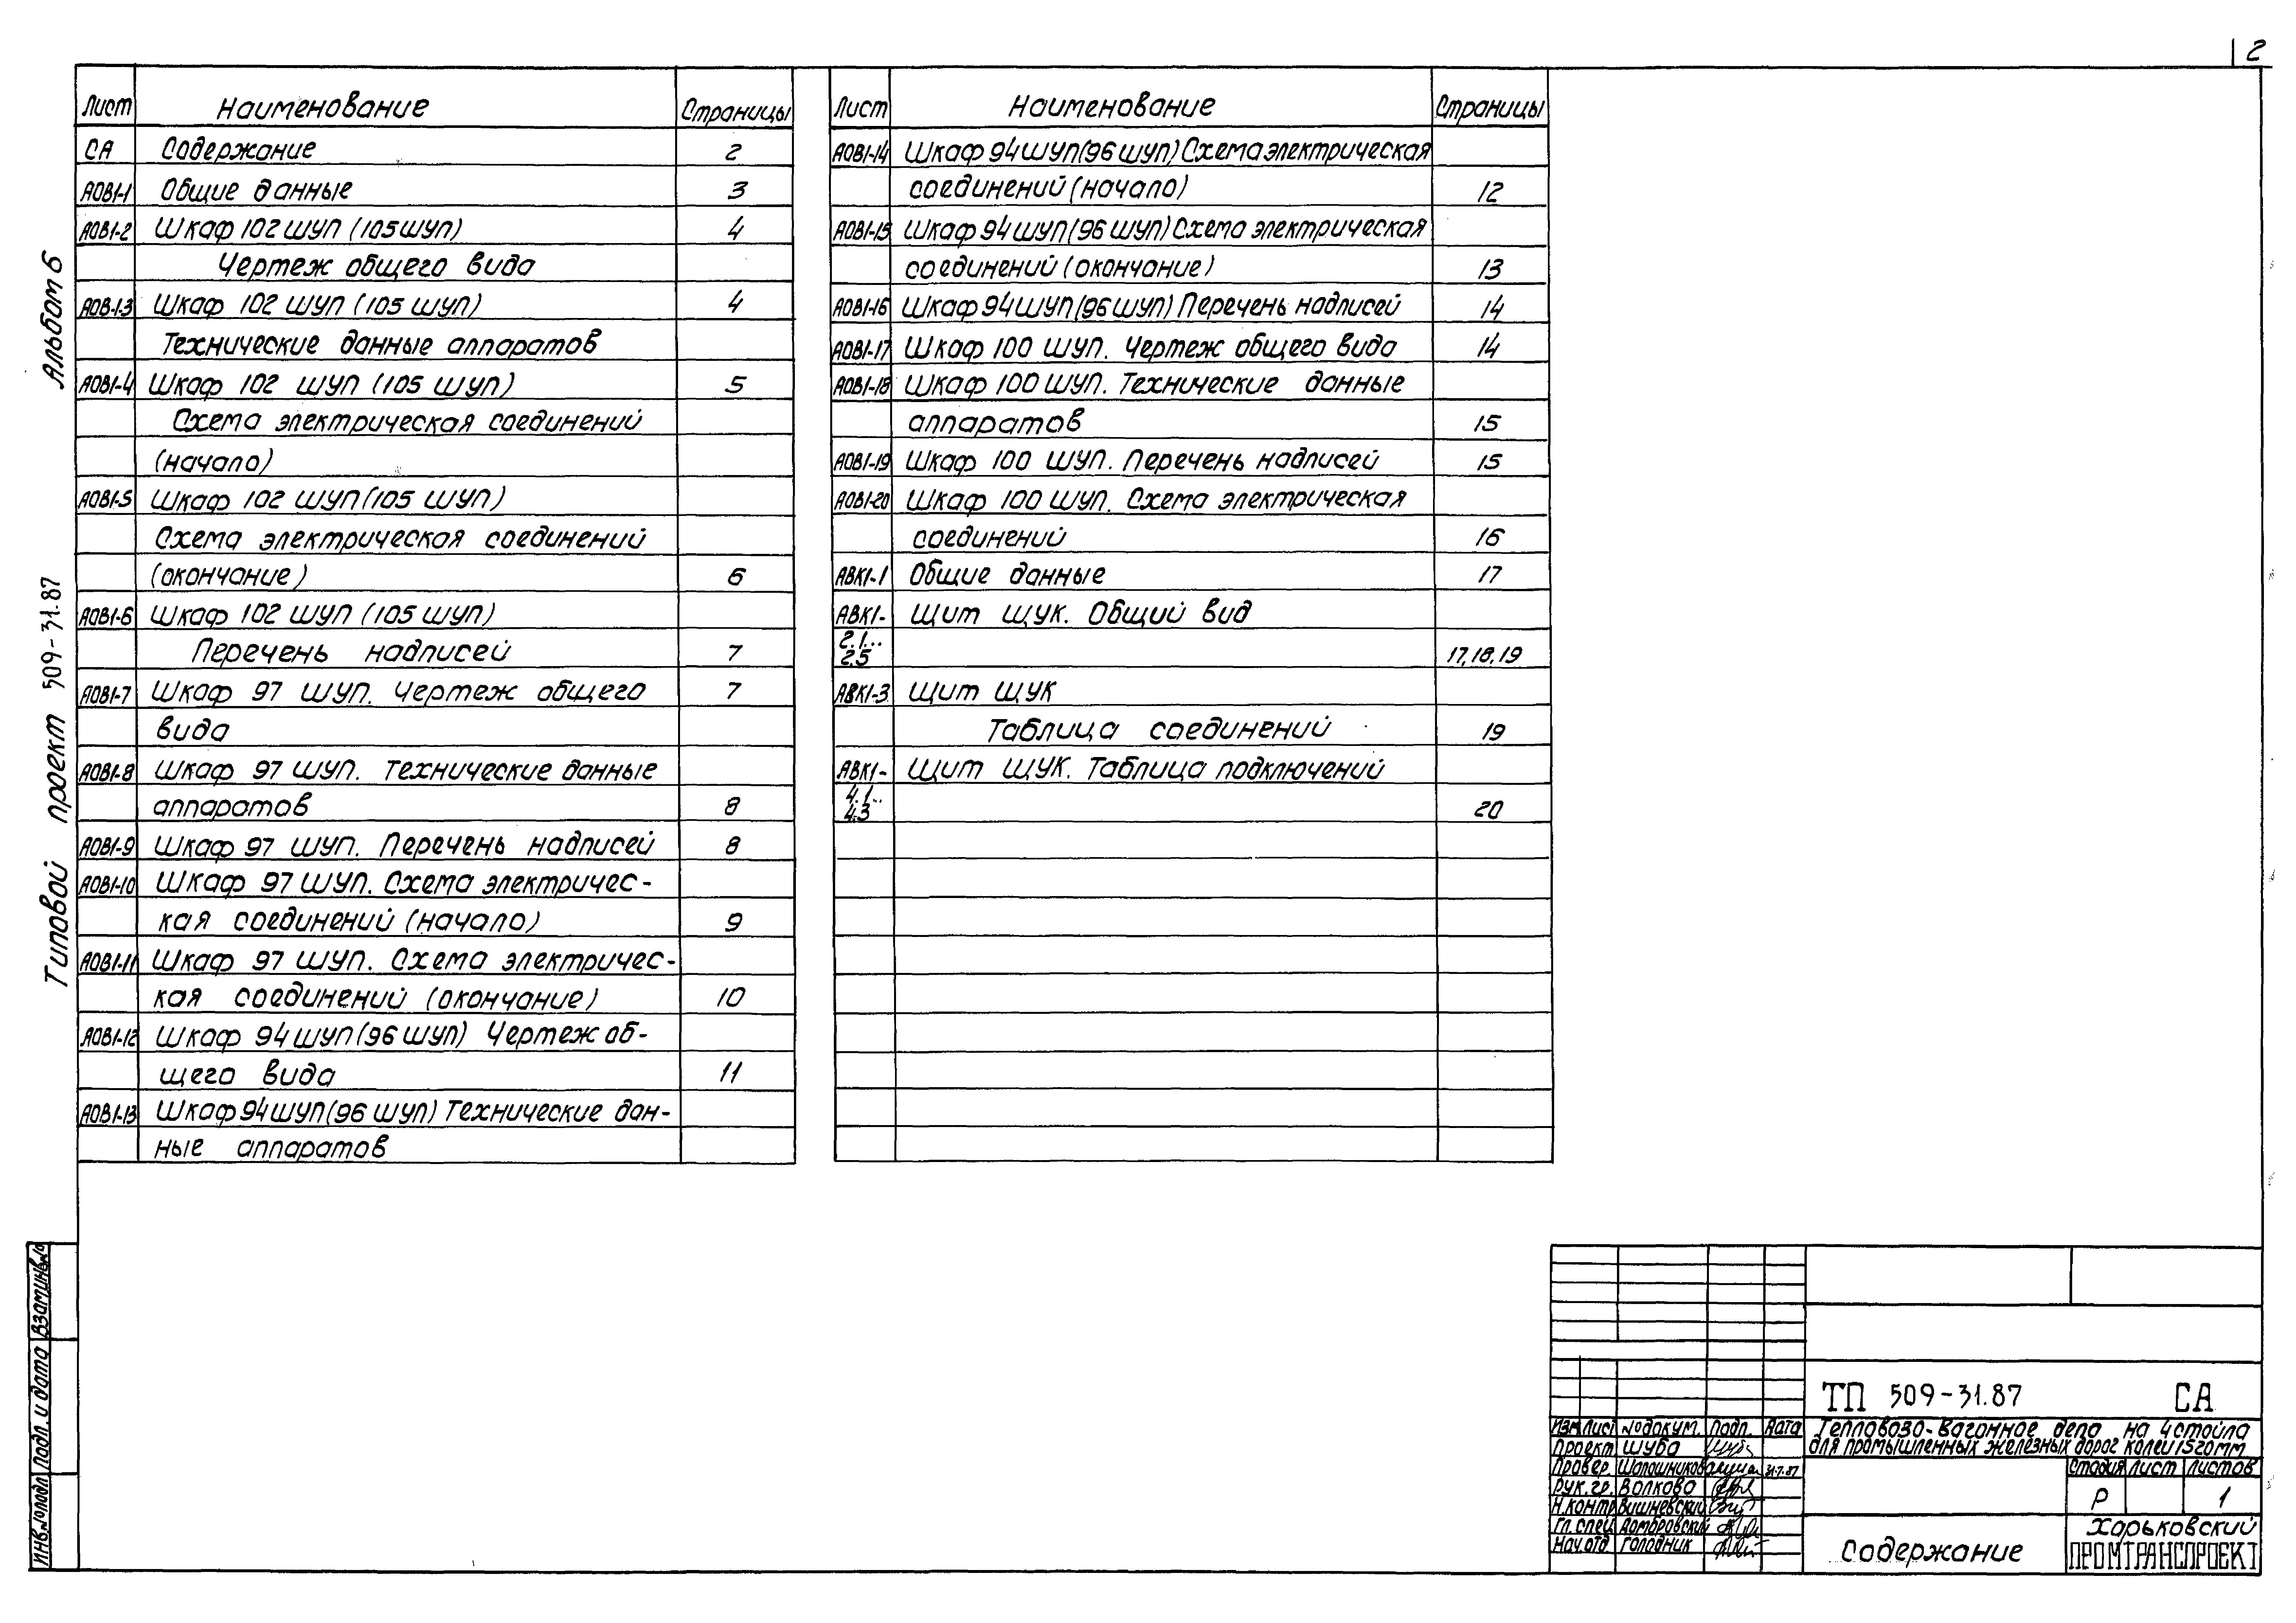 2
Альбом 6
Типовой проект 509-31.87
Лист Наименование Страницы
СА Содержание 2
АОВ1-1 Общие данные 3
АОВ1-2 Шкаф 102 ШУП (105 ШУП) 4
Чертеж общего вида
АОВ-1-3 Шкаф 102 ШУП (105 ШУП) 4
Технические данные аппаратов
АОВ1-4 Шкаф 102 ШУП (105 ШУП) 5
Схема электрическая соединений
(начало)
АОВ1-5 Шкаф 102 ШУП (105 ШУП)
Схема электрическая соединений
(окончание) 6
АОВ1-6 Шкаф 102 ШУП (105 ШУП)
Перечень надписей 7
АОВ1-7 Шкаф 97 ШУП. Чертеж общего 7
вида
АОВ1-8 Шкаф 97 ШУП. Технические данные
аппаратов 8
АОВ1-9 Шкаф 97 ШУП. Перечень надписей 8
АОВ1-10 Шкаф 97 ШУП. Схема электричес-
кая соединений (начало) 9
АОВ1-11 Шкаф 97 ШУП. Схема электричес-
кая соединений (окончание) 10
АОВ1-12 Шкаф 94 ШУП (96 ШУП) Чертеж об-
щего вида 11
АОВ1-13 Шкаф 94 ШУП (96 ШУП) Технические дан-
ные аппаратов
Лист Наименование Страницы
АОВ1-14 Шкаф 94 ШУП (96 ШУП) Схема электрическая
соединений (начало) 12
АОВ1-15 Шкаф 94 ШУП (96 ШУП) Схема электрическая
соединений (окончание) 13
АОВ1-16 Шкаф 94 ШУП (96 ШУП) Перечень надписей 14
АОВ1-17 Шкаф 100 ШУП. Чертеж общего вида 14
АОВ1-18 Шкаф 100 ШУП. Технические данные
аппаратов 15
АОВ1-19 Шкаф 100 ШУП. Перечень надписей 15
АОВ1-20 Шкаф 100 ШУП. Схема электрическая
соединений 16
АВК1-1 Общие данные 17
АВК1- Щит ЩУК. Общий вид
2.1...
2.5 17,18,19
АВК1-3 Щит ЩУК
Таблица соединений 19
АВК1- Щит ЩУК. Таблица подключений
4.1...
4.3 20
Инв.№подл Подп. и дата Взам.инв.№
ТП 509-31.87 СА
Изм Лист №докум. Подп. Дата
Тепловозо-вагонное депо на 4 стойла
для промышленных железных дорог колеи 1520мм
Проект Шуба
Провер. Шапошникова 31.7.87
Рук.гр. Волкова
Н.контр Вишневский
Гл. спец. Домбровский
Нач.отд Голодник
Стадия Лист Листов
Р 1
Содержание
Харьковский
ПРОМТРАНСПРОЕКТ